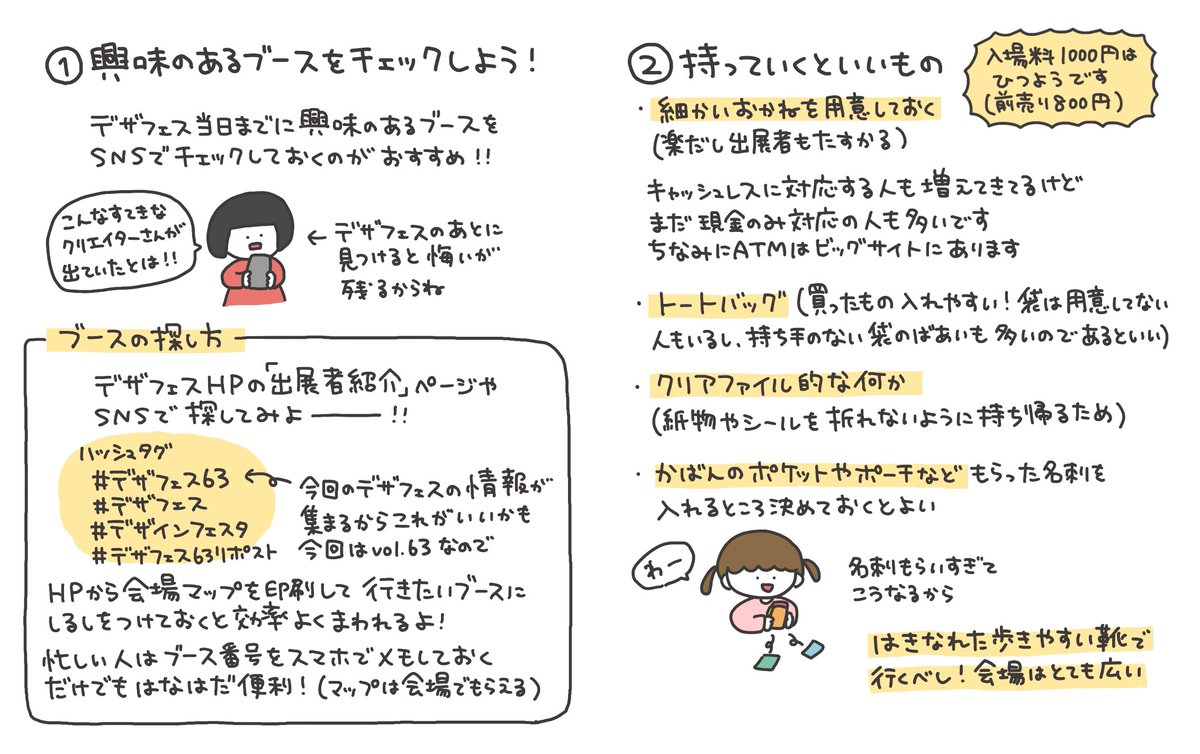 ① 興味のあるブースをチェックしよう!
デザフェス当日までに興味のあるブースを
SNSでチェックしておくのがおすすめ!!
こんなすてきな
クリエイターさんが
出ていたとは!!
← デザフェスのあとに
見つけると悔いが
残るからね
ブースの探し方
デザフェスHPの「出展者紹介」ページや
SNSで探してみよ——!!
ハッシュタグ
#デザフェス63
#デザフェス
#デザインフェスタ
#デザフェス63リポスト
← 今回のデザフェスの情報が
集まるからこれがいいかも
今回はvol.63なので
HPから会場マップを印刷して行きたいブースに
しるしをつけておくと効率よくまわれるよ!
忙しい人はブース番号をスマホでメモしておく
だけでもはなはだ便利!(マップは会場でもらえる)
② 持っていくといいもの
入場料1000円は
ひつようです
(前売り800円)
・細かいおかねを用意しておく
(楽だし出展者もたすかる)
キャッシュレスに対応する人も増えてきてるけど
まだ現金のみ対応の人も多いです
ちなみにATMはビッグサイトにあります
・トートバッグ(買ったもの入れやすい!袋は用意してない
人もいるし、持ち手のない袋のばあいも多いのであるといい)
・クリアファイル的な何か
(紙物やシールを折れないように持ち帰るため)
・かばんのポケットやポーチなどもらった名刺を
入れるところ決めておくとよい
わー
名刺もらいすぎて
こうなるから
はきなれた歩きやすい靴で
行くべし!会場はとても広い